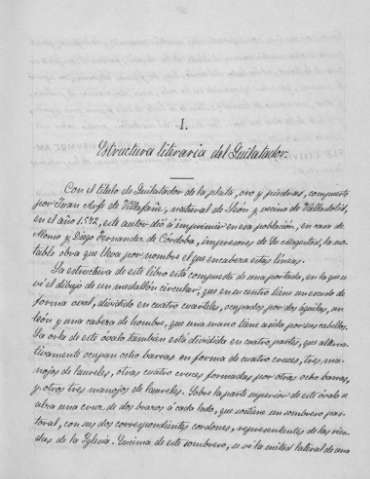 I.
Estructura literaria del Quilatador.
Con el título de Quilatador de la plata, oro y piedras, compuesto
por Joan Arfe de Villafañe, natural de León y vecino de Valladolid,
en el año 1572, este autor dió á imprimir en esa población, en casa de
Alonso y Diego Fernandez de Córdoba, impresores de Su Magestad, la no-
table obra que lleva por nombre el que encabeza estas líneas.
La estructura de este libro está compuesta de una portada, en la que se
vé el dibujo de un medallón circular, que en su centro tiene un escudo de
forma oval, dividido en cuatro cuarteles, ocupados por dos águilas, un
león y una cabeza de hombre, que una mano tiene asida por sus cabellos.
La orla de este óvalo también está dividida en cuatro partes, que alterna-
tivamente ocupan ocho barras en forma de cuatro cruces, tres ma-
nojos de laureles, otras cuatro cruces formadas por otras ocho barras,
y otros tres manojos de laureles. Sobre la parte superior de este óvalo se
abre una cruz de dos brazos á cada lado, que sostiene un sombrero pas-
toral, con sus dos correspondientes cordones, representantes de las
de la Iglesia. Encima de este sombrero, se vé la mitad lateral de una